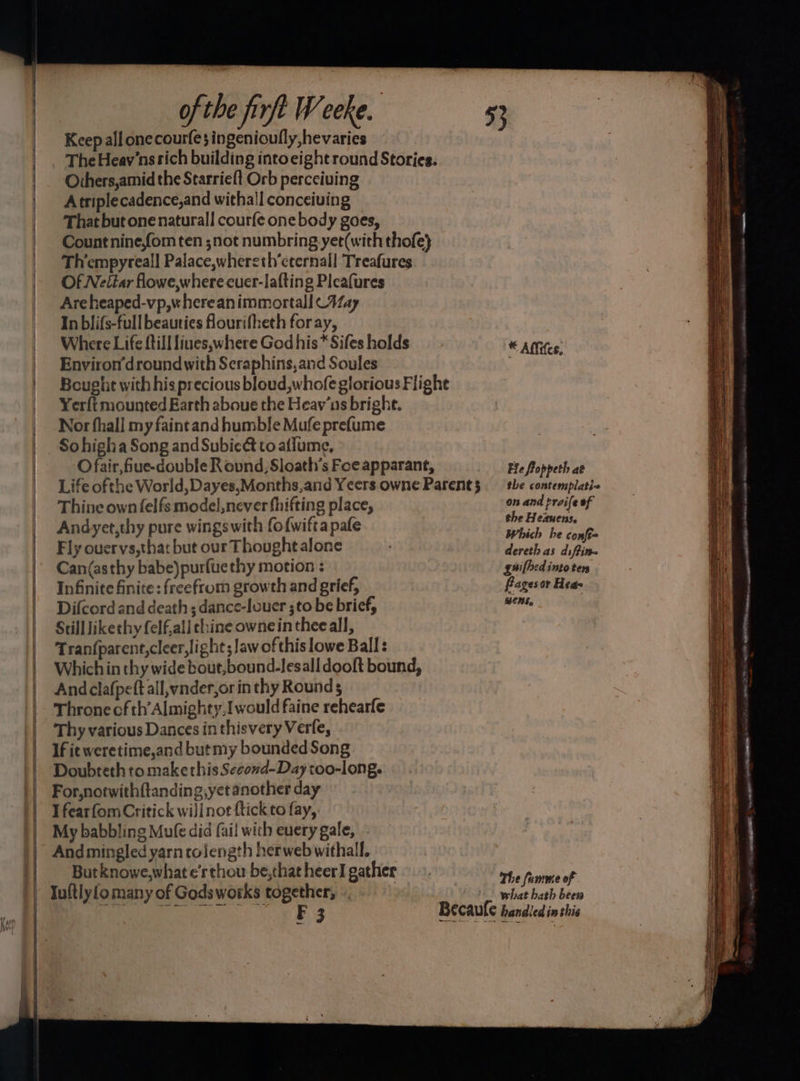 of the first Weeke. 53
Keep all one course; ingeniously, he varies
The Heav'ns rich building into eight round Stories.
Others, amid the Starriest Orb perceiuing
A triple cadence, and withall conceiuing
That but one naturall course one body goes,
Count nine, som ten; not numbring yet (with those)
Th'empyreall Palace, where th'eternall Treasures
Of Nectar flowe, where euer-lasting Pleasures
Are heaped-vp, where an immortall May
In bliss-full beauties flourisheth for ay,
Where Life still liues, where God his * Sises holds
* Assises.
Environ'd round with Seraphins, and Soules
Bought with his precious bloud, whose glorious Flight
Yerst mounted Earth aboue the Heav'ns bright.
Nor shall my faint and humble Muse presume
So high a Song and Subiect to assume.
O fair, fiue-double Round, Sloath's Foe apparant,
Life of the World, Dayes, Months, and Yeers owne Parent;
Thine own selfs model, never shifting place,
And yet, thy pure wings with so swift a pase
Fly ouer vs, that but our Thought alone
Can (as thy babe) pursue thy motion:
Infinite finite: free from growth and grief,
Discord and death; dance-louer; to be brief,
Still like thy self, all thine owne in thee all,
Transparent, cleer, light; law of this lowe Ball:
Which in thy wide bout, bound-les all doost bound,
And claspest all, vnder, or in thy Round;
Throne of th'Almighty, I would faine rehearse
Thy various Dances in this very Verse,
If it were time, and but my bounded Song
Doubteth to make this Second-Day too-long.
For, notwithstanding, yet another day
I fear som Critick will not stick to say,
My babbling Muse did sail with euery gale,
And mingled yarn to length her web withall.
But knowe, what e'r thou be, that heer I gather
Iustly so many of Gods works together,
He stoppeth at
the contemplati-
on and praise of
the Heauens,
Which he consi-
dereth as distin-
guished into ten
stages or Hea-
uens.
The summe of
what hath been
handled in this
F 3
Because